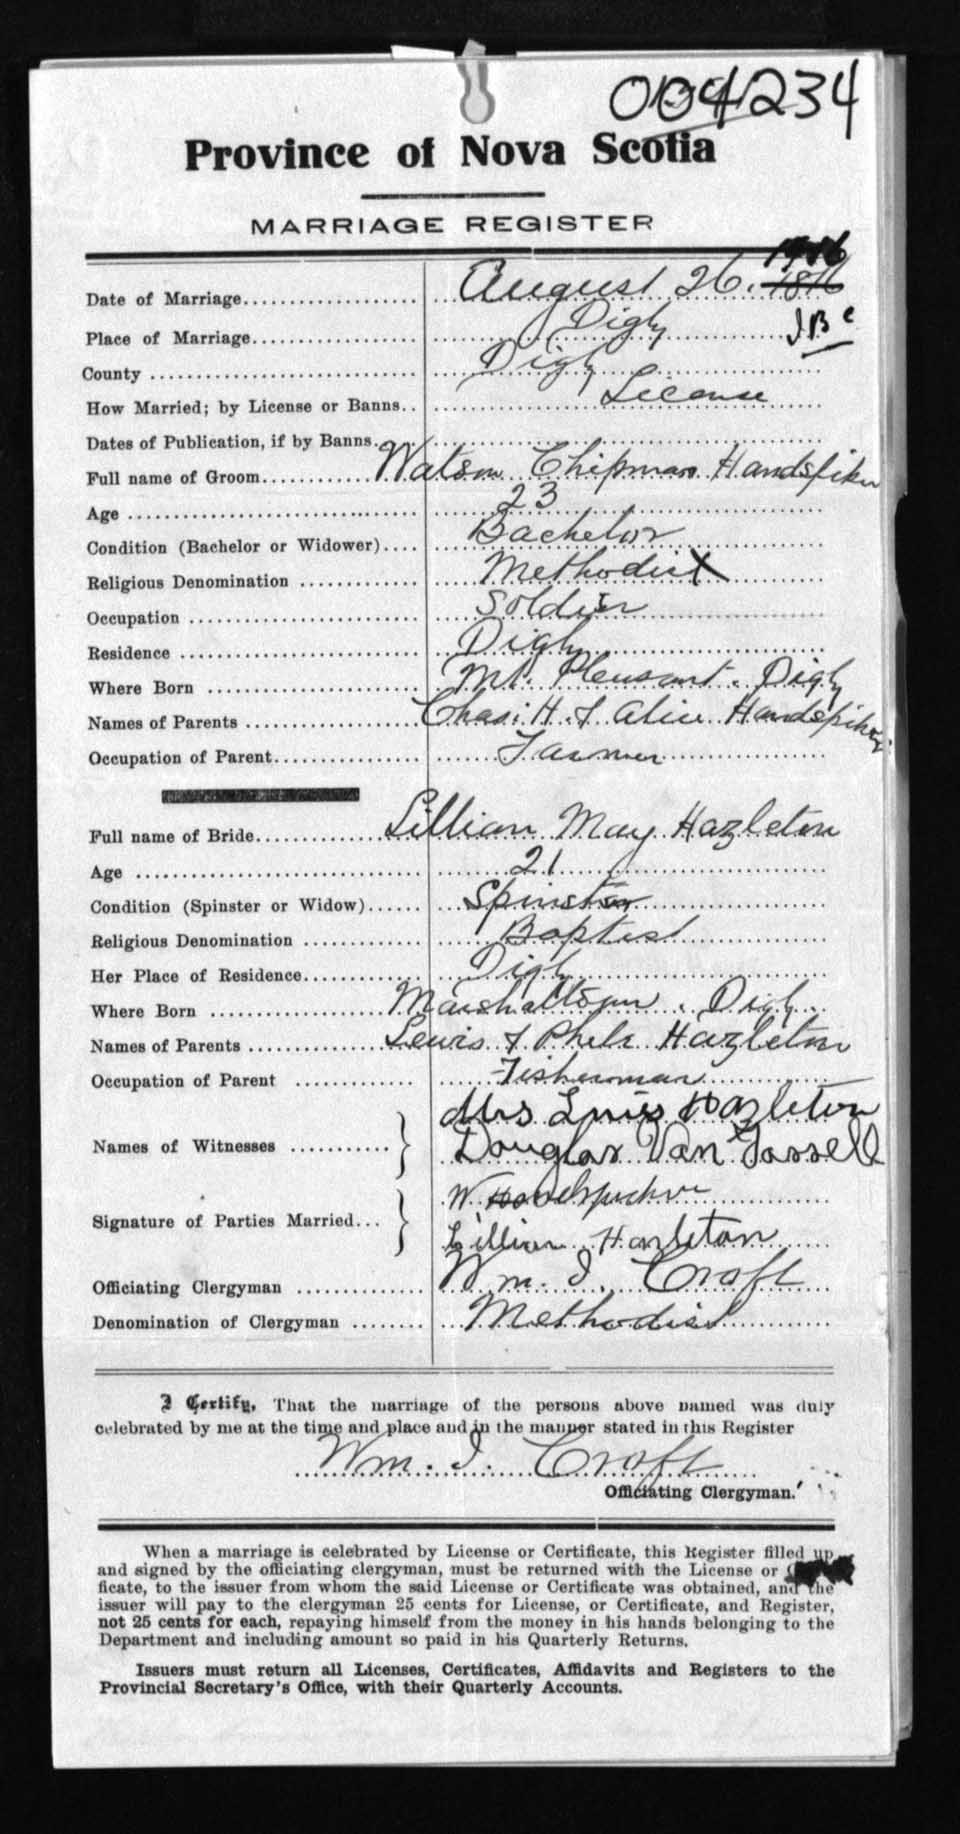 004234
Province of Nova Scotia
MARRIAGE REGISTER
1916
Date of Marriage August 26. 1816
Place of Marriage Digby J B C
County Digby
How Married; by License or Banns License
Dates of Publication, if by Banns
Full name of Groom Watson Chipman Handspiker
Age 23
Condition (Bachelor or Widower) Bachelor
Religious Denomination Methodist
Occupation Soldier
Residence Digby
Where Born Mt. Pleasant. Digby
Names of Parents Chas. H. & Alice Handspiker
Occupation of Parent Farmer
Full name of Bride Lillian May Hazleton
Age 21
Condition (Spinster or Widow) Spinster
Religious Denomination Baptist
Her Place of Residence Digby
Where Born Marshalltown. Digby
Names of Parents Lewis & Hazleton
Occupation of Parent Fisherman
Names of Witnesses Mrs Hazleton
Douglas Van Tassell
Signature of Parties Married W
Lillian Hazleton
Officiating Clergyman Wm. I. Croft
Denomination of Clergyman Methodist
I Certify, That the marriage of the persons above named was duly
celebrated by me at the time and place and in the manner stated in this Register
Wm. I. Croft
Officiating Clergyman.
When a marriage is celebrated by License or Certificate, this Register filled up
and signed by the officiating clergyman, must be returned with the License or
ficate, to the issuer from whom the said License or Certificate was obtained, and the
issuer will pay to the clergyman 25 cents for License, or Certificate, and Register,
not 25 cents for each, repaying himself from the money in his hands belonging to the
Department and including amount so paid in his Quarterly Returns.
Issuers must return all Licenses, Certificates, Affidavits and Registers to the
Provincial Secretary's Office, with their Quarterly Accounts.